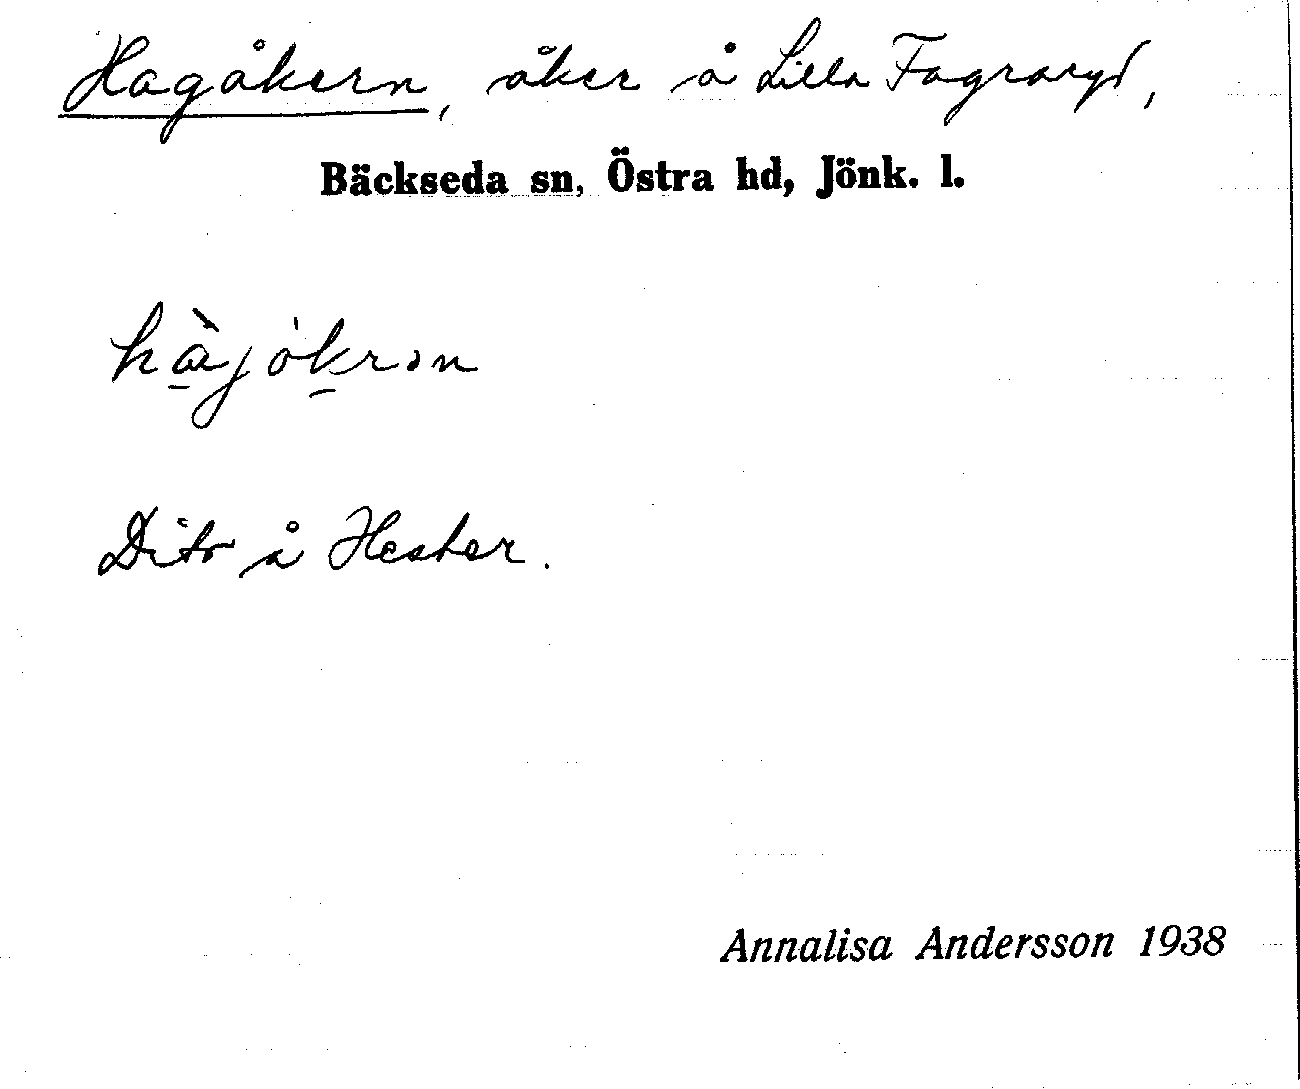 Hagåkern, åker å Lilla Fagraryd,
Bäckseda sn, Östra hd, Jönk. l.
Dito å Hester.
Annalisa Andersson 1938